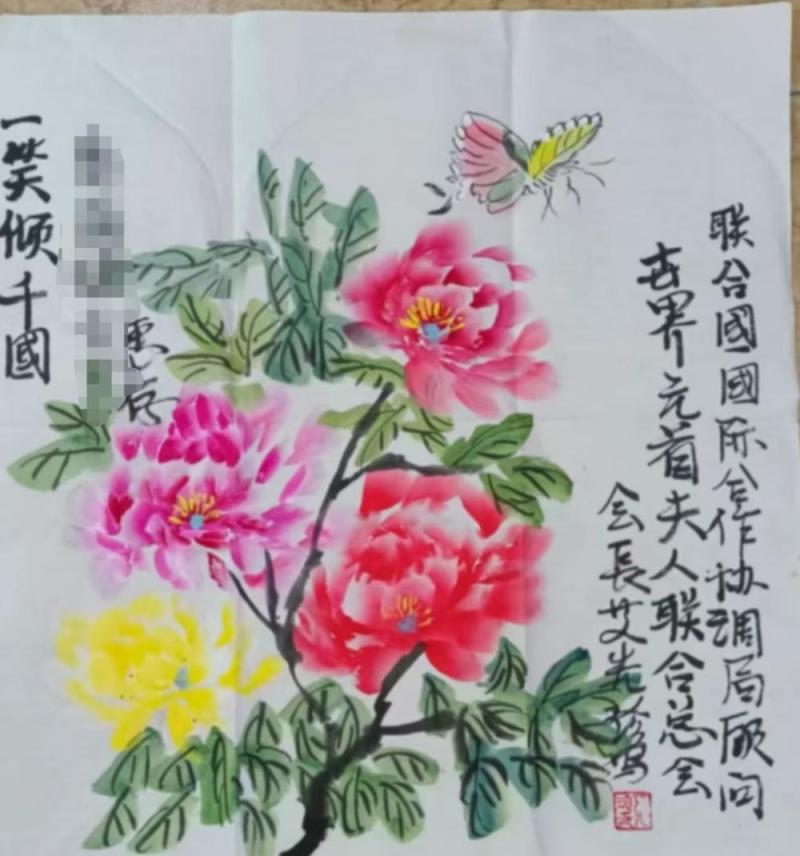 联合國國际合作协调局顾问
世界元首夫人联合总会
会長艾 写
惠存
一笑倾千國